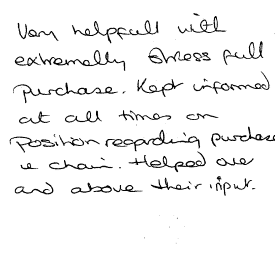 Very helpfull with
extremelly stress full
purchase. Kept informed
at all times on
Position regarding purchase
ie chain. Helped over
and above their input.